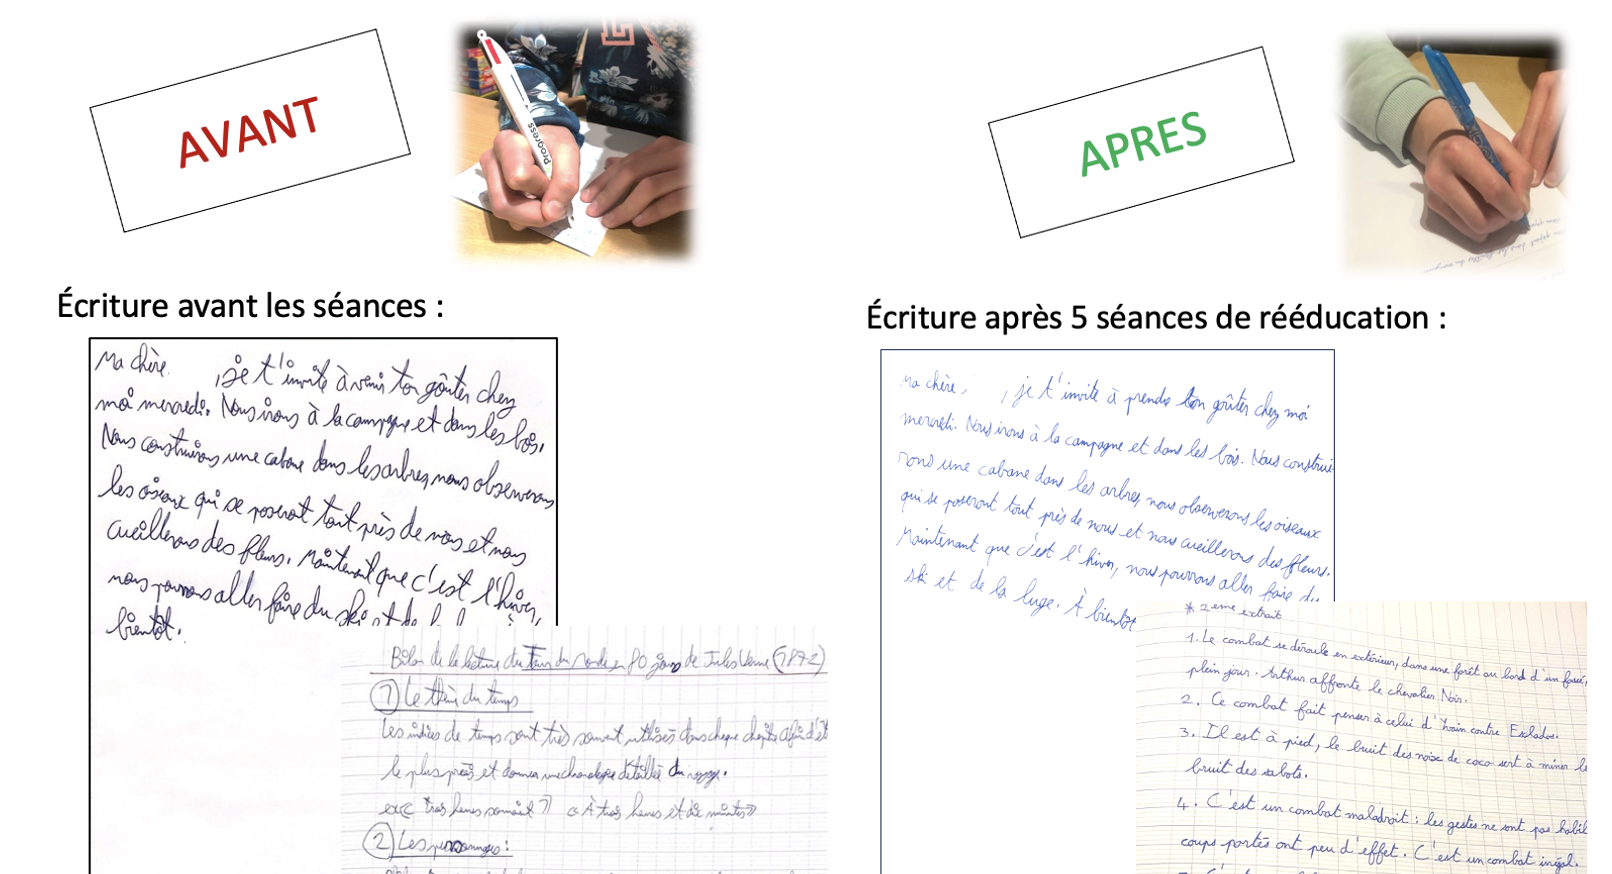 AVANT
Progress
Écriture avant les séances :
Ma chère ,je t'invite à venir ton goûter chez
moi mercredi. Nous irons à la campagne et dans les bois.
Nous construirons une cabane dans les arbres, nous observerons
les oiseaux qui se poserot tout près de nous et nous
cueillerons des fleurs. Maintenant que c'est l'hiver,
nous pourrons aller faire du ski et de la
bientôt.
Bilan de la lecture du Tour du Monde en 80 jours de Jules Verne (1872)
1 Le thème du temps
Les indices de temps sont très souvent utilisés dans chaque chapitre afin d'êt
le plus précis et donner une chronologie détaillée du voyage.
ex: trois heures « À trois heures et dix minutes »
2 Les personnages :
APRES
Écriture après 5 séances de rééducation :
Ma chère, , je t'invite à prendre ton goûter chez moi
mercredi. Nous irons à la campagne et dans les bois. Nous construi-
rons une cabane dans les arbres, nous observerons les oiseaux
qui se poseront tout près de nous et nous cueillerons des fleurs.
Maintenant que c'est l'hiver, nous pourrons aller faire du
ski et de la luge. À bientôt
* 2eme extrait
1. Le combat se déroule en extérieur, dans une forêt au bord d'un fossé,
plein jour. Arthur affronte le chevalier Noir.
2. Ce combat fait penser à celui d'Yvain contre Esclados.
3. Il est à pied, le bruit des noix de coco sert à mimer le
bruit des sabots.
4. C'est un combat maladroit : les gestes ne sont pas habil
coups portés ont peu d'effet. C'est un combat inégal.